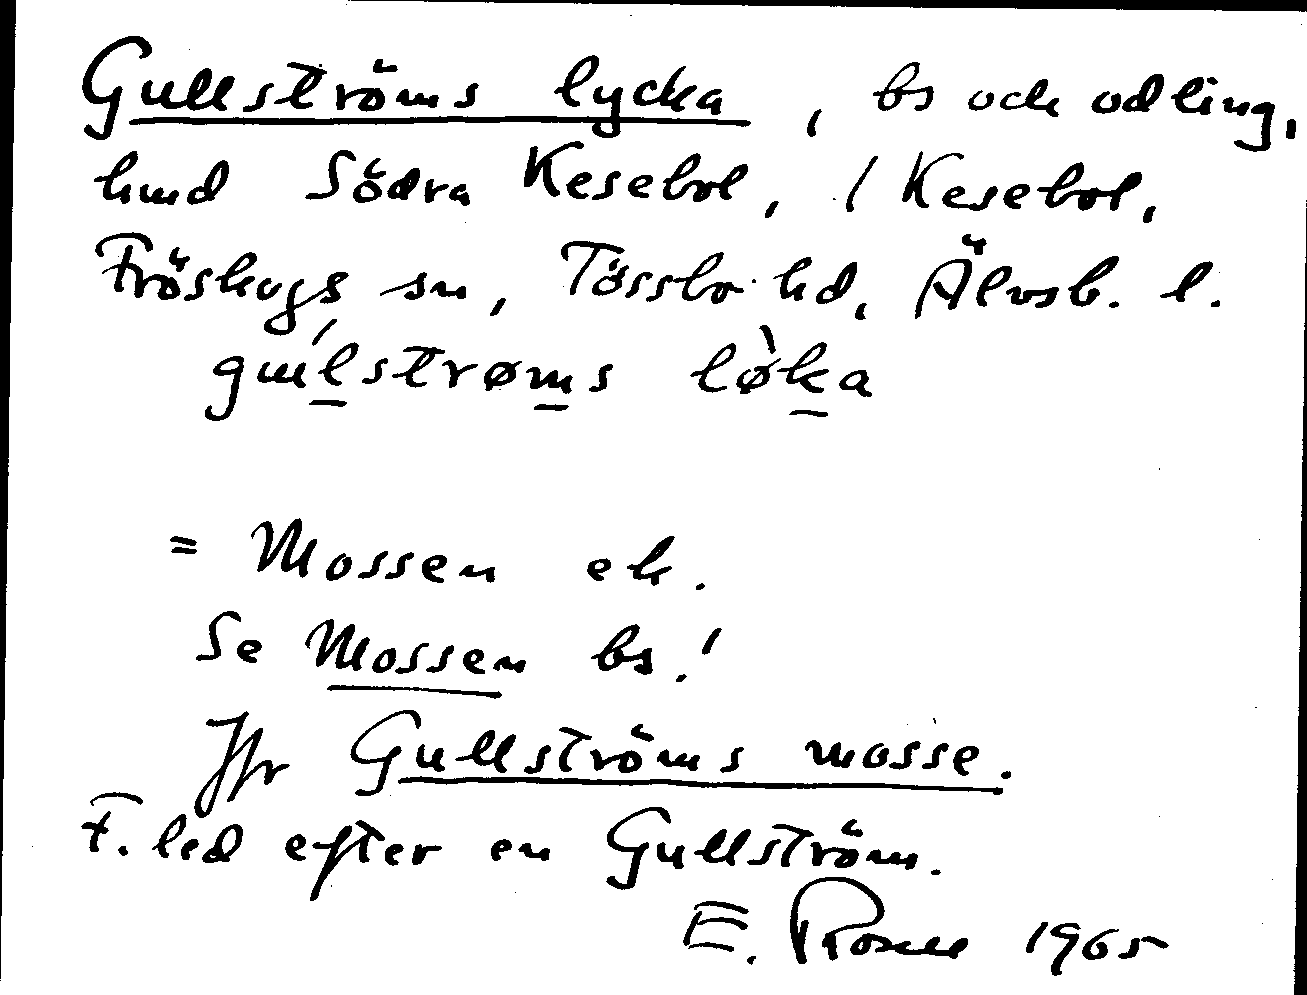 Gullströms lycka, bs och odling,
hmd Södra Kesebol, / Kesebol,
Fröskogs sn, Tössbo hd, Älvsb. l.
gul̲strøm̲s lø̀k̲a
= Mossen ek.
Se Mossen bs.!
Jfr Gullströms mosse.
F. led efter en Gullström.
E. Rosell 1965